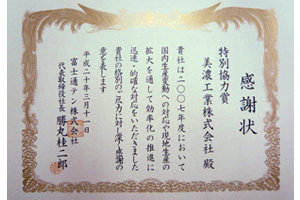 感謝状
特別協力賞
美濃工業株式会社 殿
貴社は二〇〇七年度において
国内生産変動への対応や現地生産の
拡大を通して効率化の推進に
迅速・的確な対応をいただきました
貴社の格別のご尽力に対し深く感謝の
意を表します
平成二十年三月十一日
富士通テン株式会社
代表取締役社長 勝丸桂二郎